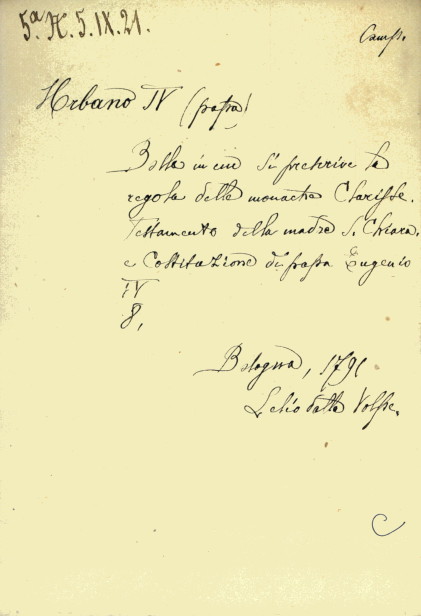 5.ª H. 5. IX. 21.
Camp.
Urbano IV (papa)
Bolla in cui si prescrive la
regola delle monache Clarisse.
Testamento della madre S. Chiara.
e Costituzione di papa Eugenio
IV
8,
Bologna, 1791
Lelio dalla Volpe.
C